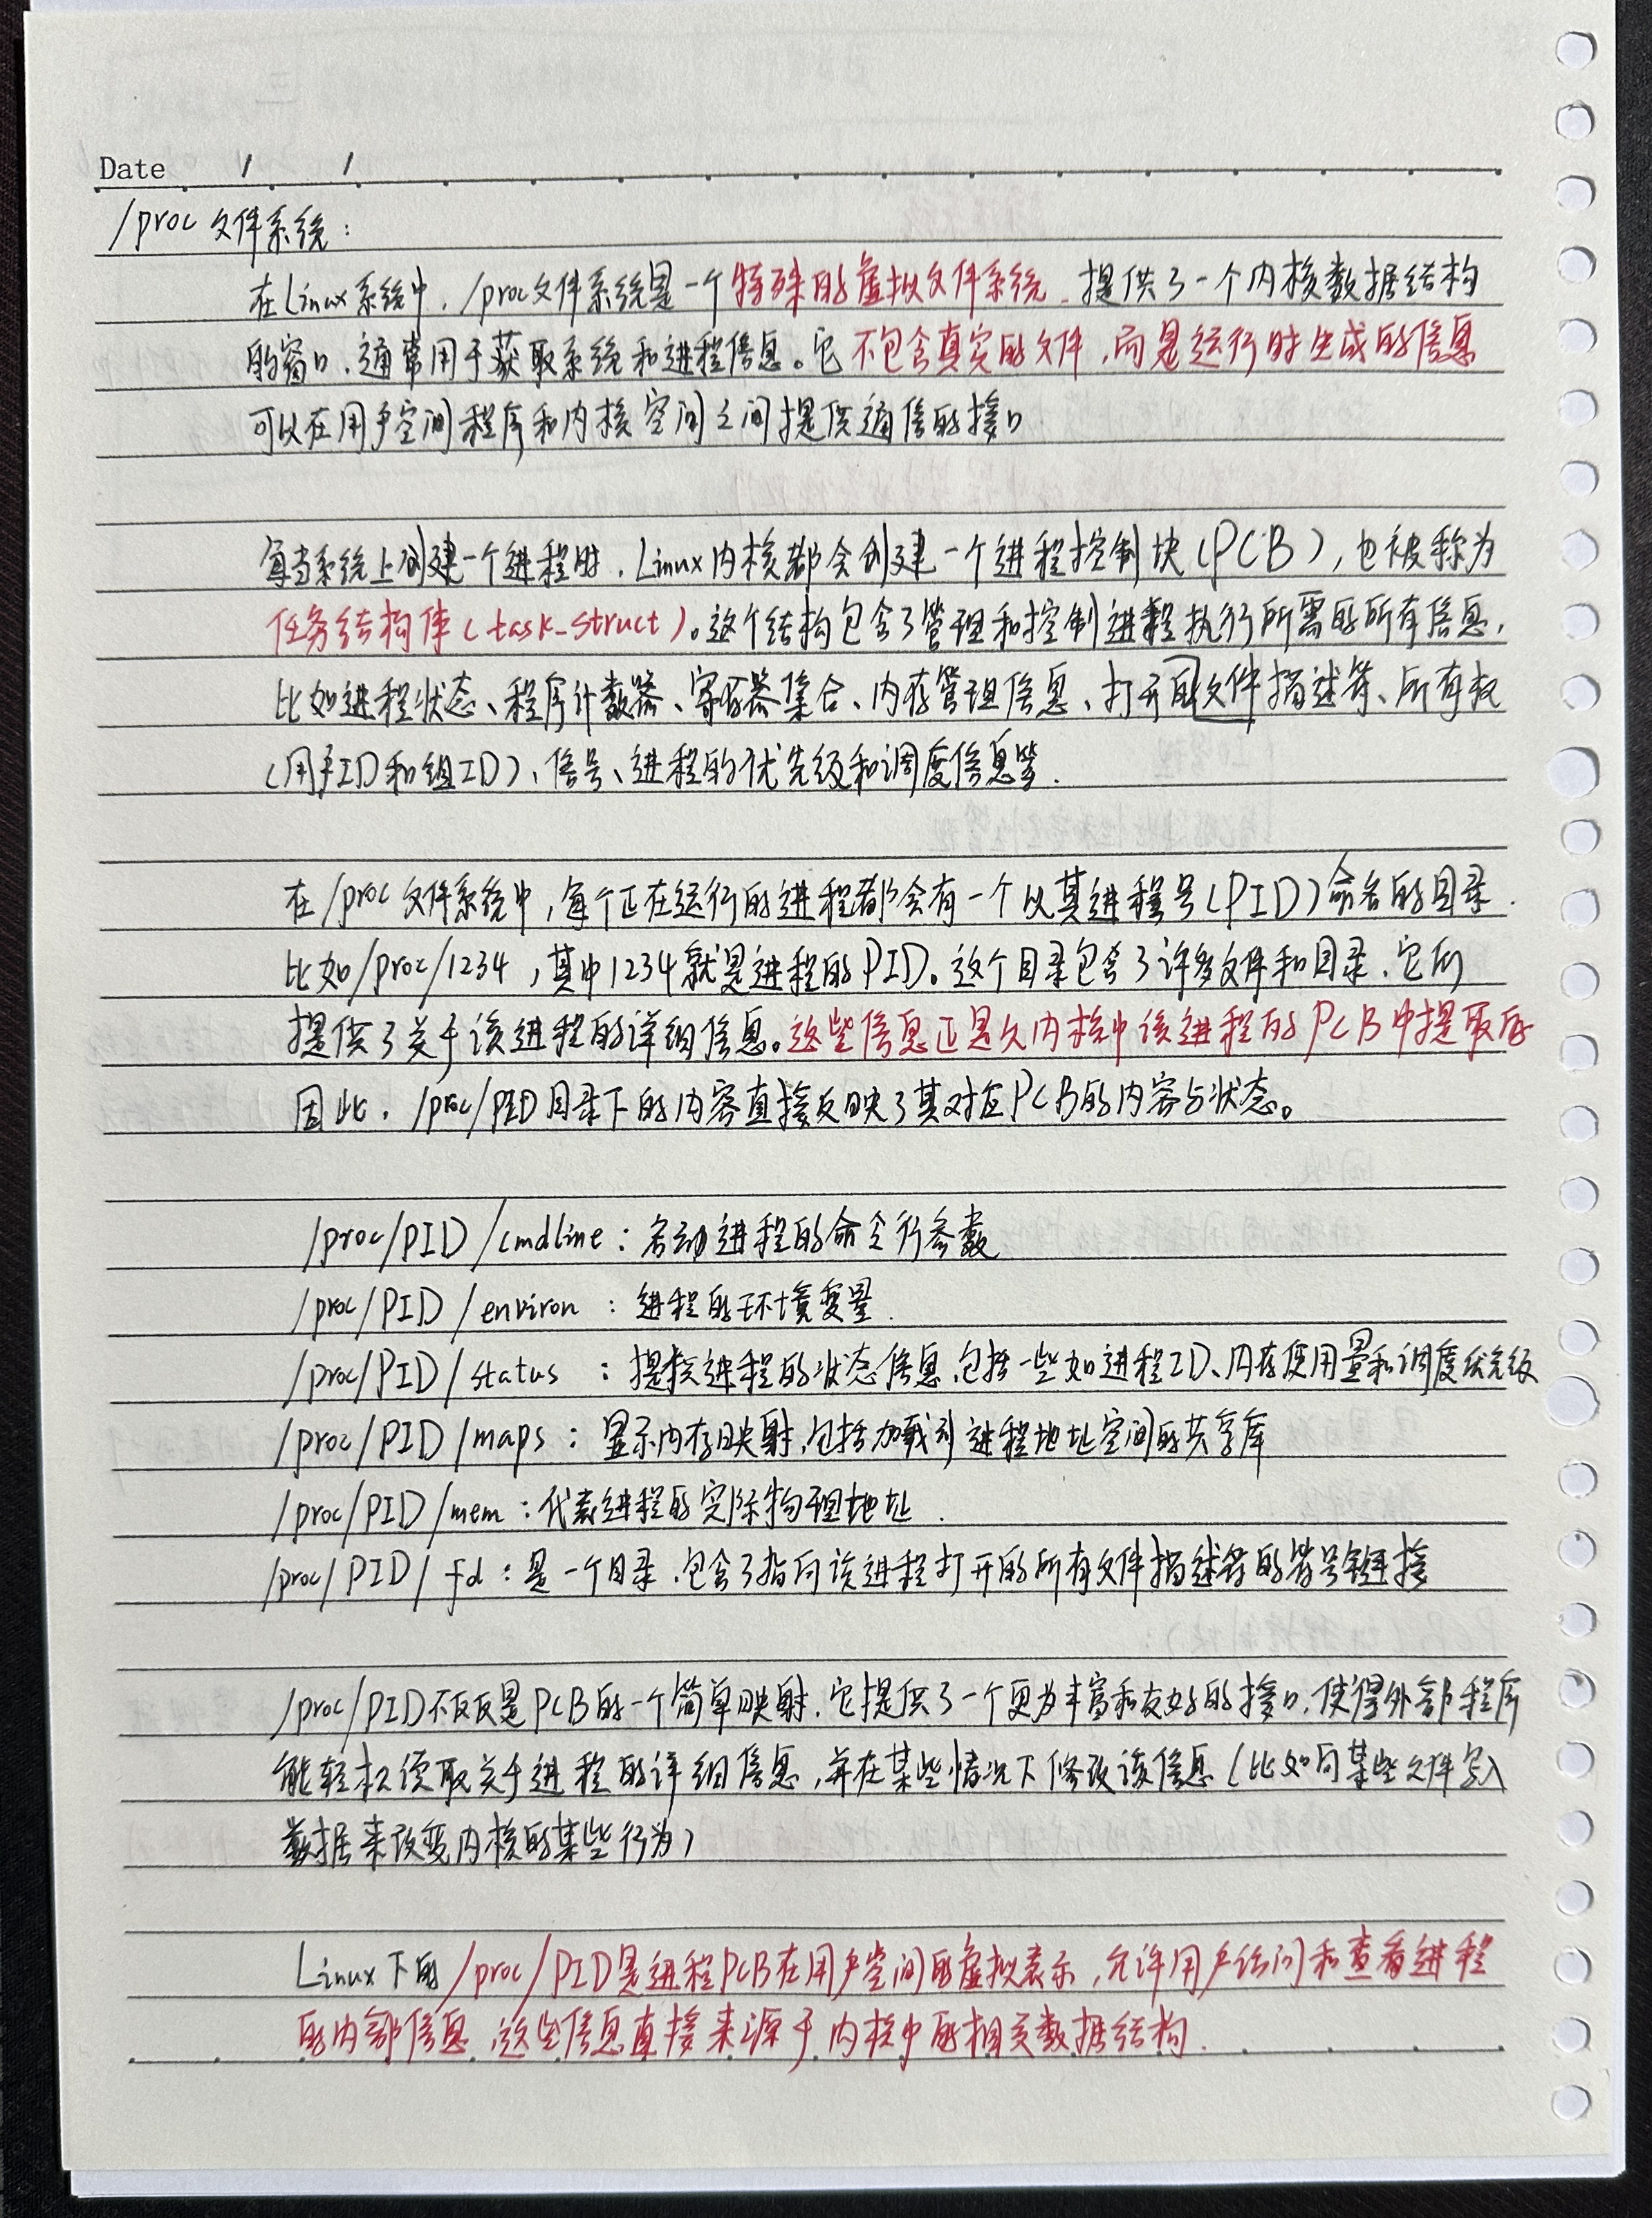 Date / /
/proc 文件系统：
在Linux系统中，/proc文件系统是一个特殊的虚拟文件系统，提供了一个内核数据结构
的窗口，通常用于获取系统和进程信息。它不包含真实的文件，而是运行时生成的信息
可以在用户空间程序和内核空间之间提供通信的接口
每当系统上创建一个进程时，Linux内核都会创建一个进程控制块(PCB)，也被称为
任务结构体(task_struct)。这个结构包含了管理和控制进程执行所需的所有信息，
比如进程状态、程序计数器、寄存器集合、内存管理信息、打开的文件描述符、所有权
(用户ID和组ID)、信号、进程的优先级和调度信息等.
在/proc文件系统中，每个正在运行的进程都会有一个以其进程号(PID)命名的目录.
比如/proc/1234，其中1234就是进程的PID。这个目录包含了许多文件和目录，它们
提供了关于该进程的详细信息。这些信息正是从内核中该进程的PCB中提取的
因此，/proc/PID目录下的内容直接反映了其对应PCB的内容与状态。
/proc/PID/cmdline：启动进程的命令行参数
/proc/PID/environ：进程的环境变量.
/proc/PID/status：提供进程的状态信息，包括一些如进程ID、内存使用量和调度优先级
/proc/PID/maps：显示内存映射，包括加载到进程地址空间的共享库
/proc/PID/mem：代表进程的实际物理地址.
/proc/PID/fd：是一个目录，包含了指向该进程打开的所有文件描述符的符号链接
/proc/PID不仅仅是PCB的一个简单映射，它提供了一个更为丰富和友好的接口，使得外部程序
能轻松读取关于进程的详细信息，并在某些情况下修改该信息(比如向某些文件写入
数据来改变内核的某些行为)
Linux下的/proc/PID是进程PCB在用户空间的虚拟表示，允许用户访问和查看进程
的内部信息，这些信息直接来源于内核中的相关数据结构.